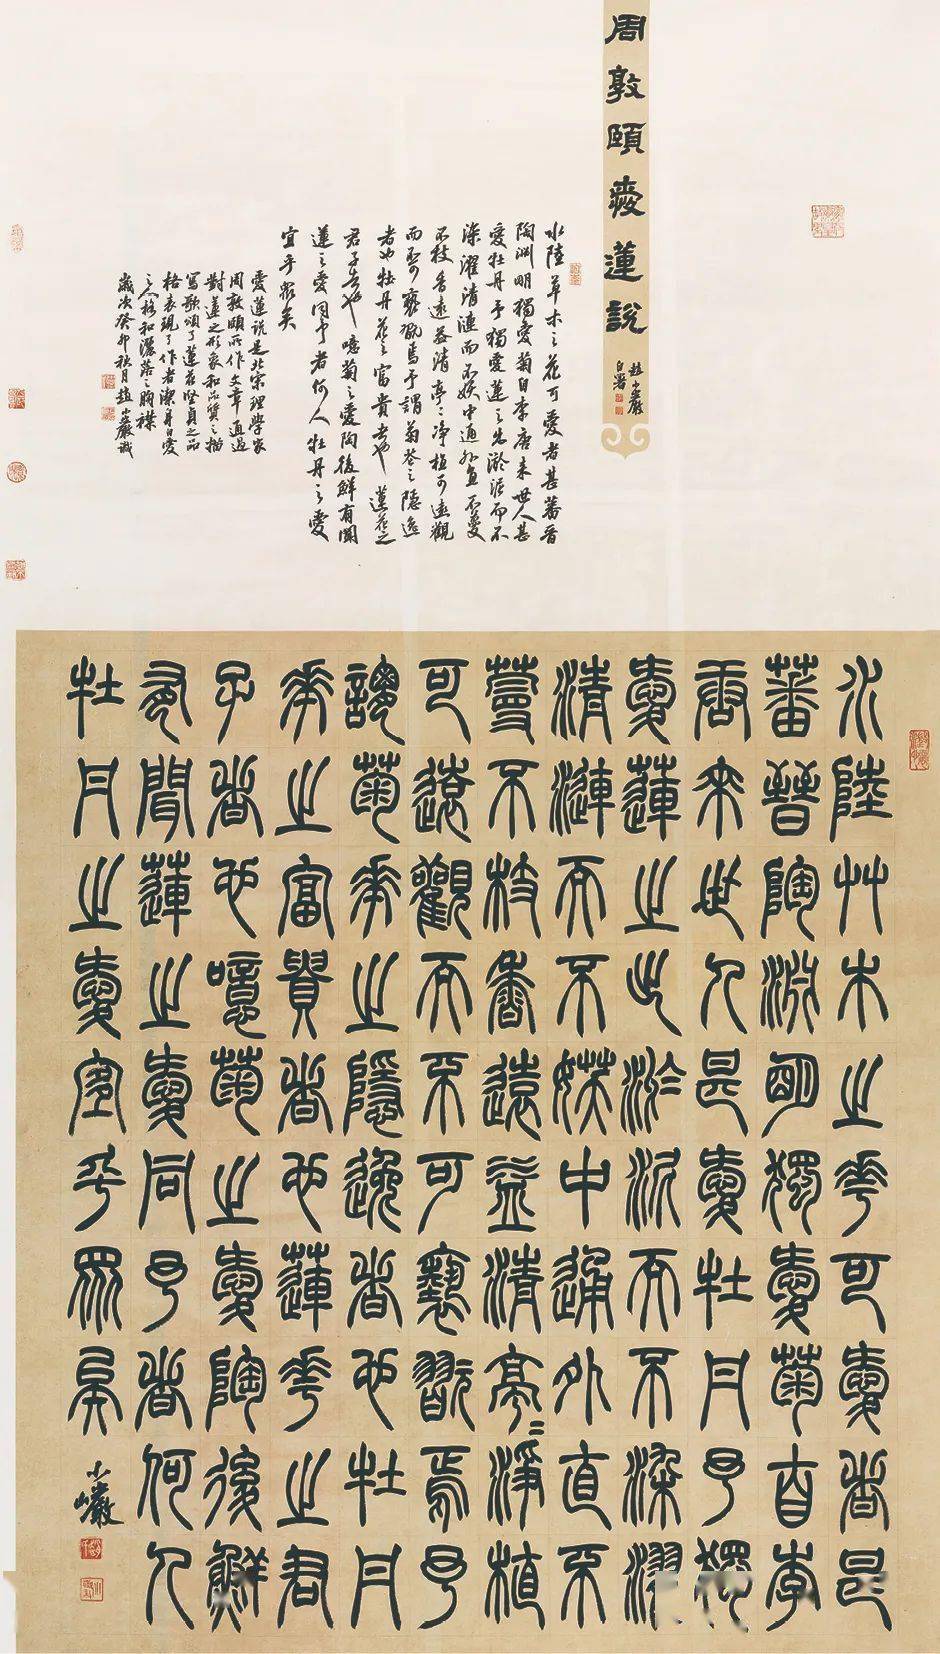 周敦頤愛蓮說
趙小巖
自署
水陸草木之花可愛者甚蕃晉
陶淵明獨愛菊自李唐来世人甚
愛牡丹予獨愛蓮之出淤泥而不
染濯清漣而不妖中通外直不蔓
不枝香遠益清亭亭淨植可遠觀
而不可褻翫焉予謂菊花之隱逸
者也牡丹花之富貴者也蓮花之
君子者也噫菊之愛陶後鮮有聞
蓮之愛同予者何人牡丹之愛
宜乎眾矣
愛蓮說是北宋理學家
周敦頤所作文章通過
對蓮之形象和品質之描
寫歌頌了蓮花堅貞之品
格表現了作者潔身自愛
之人格和灑落之胸襟
歲次癸卯秋月趙小巖識
水陸艸木之花可愛者甚
蕃晉陶淵明獨愛菊自李
唐来世人甚愛牡丹予獨
愛蓮之出淤泥而不染濯
清漣而不妖中通外直不
蔓不枝香遠益清亭亭淨植
可遠觀而不可褻翫焉予
謂菊華之隱逸者也牡丹
華之富貴者也蓮花之君
子者也噫菊之愛陶後鮮
有聞蓮之愛同予者何人
牡丹之愛宜乎眾矣
小巖